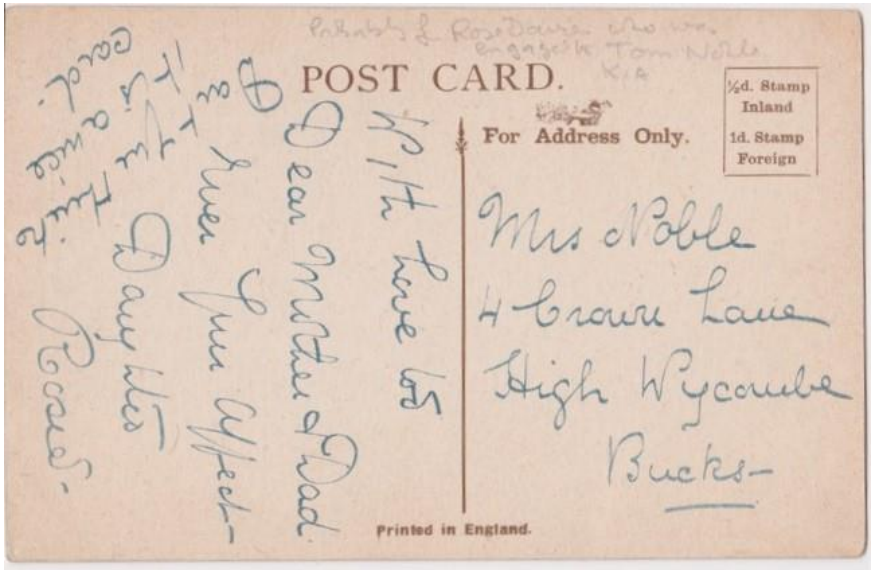 Probably fr Rose Davies who was
engaged to Tom Noble
KIA
POST CARD.
½d. Stamp
Inland
1d. Stamp
Foreign
For Address Only.
With love to
Dear Mother & Dad
Ever Your Affect-
Daughter
Rose.
You think
Is a nice
card.
Mrs Noble
4 Crown Lane
High Wycombe
Bucks-
Printed in England.